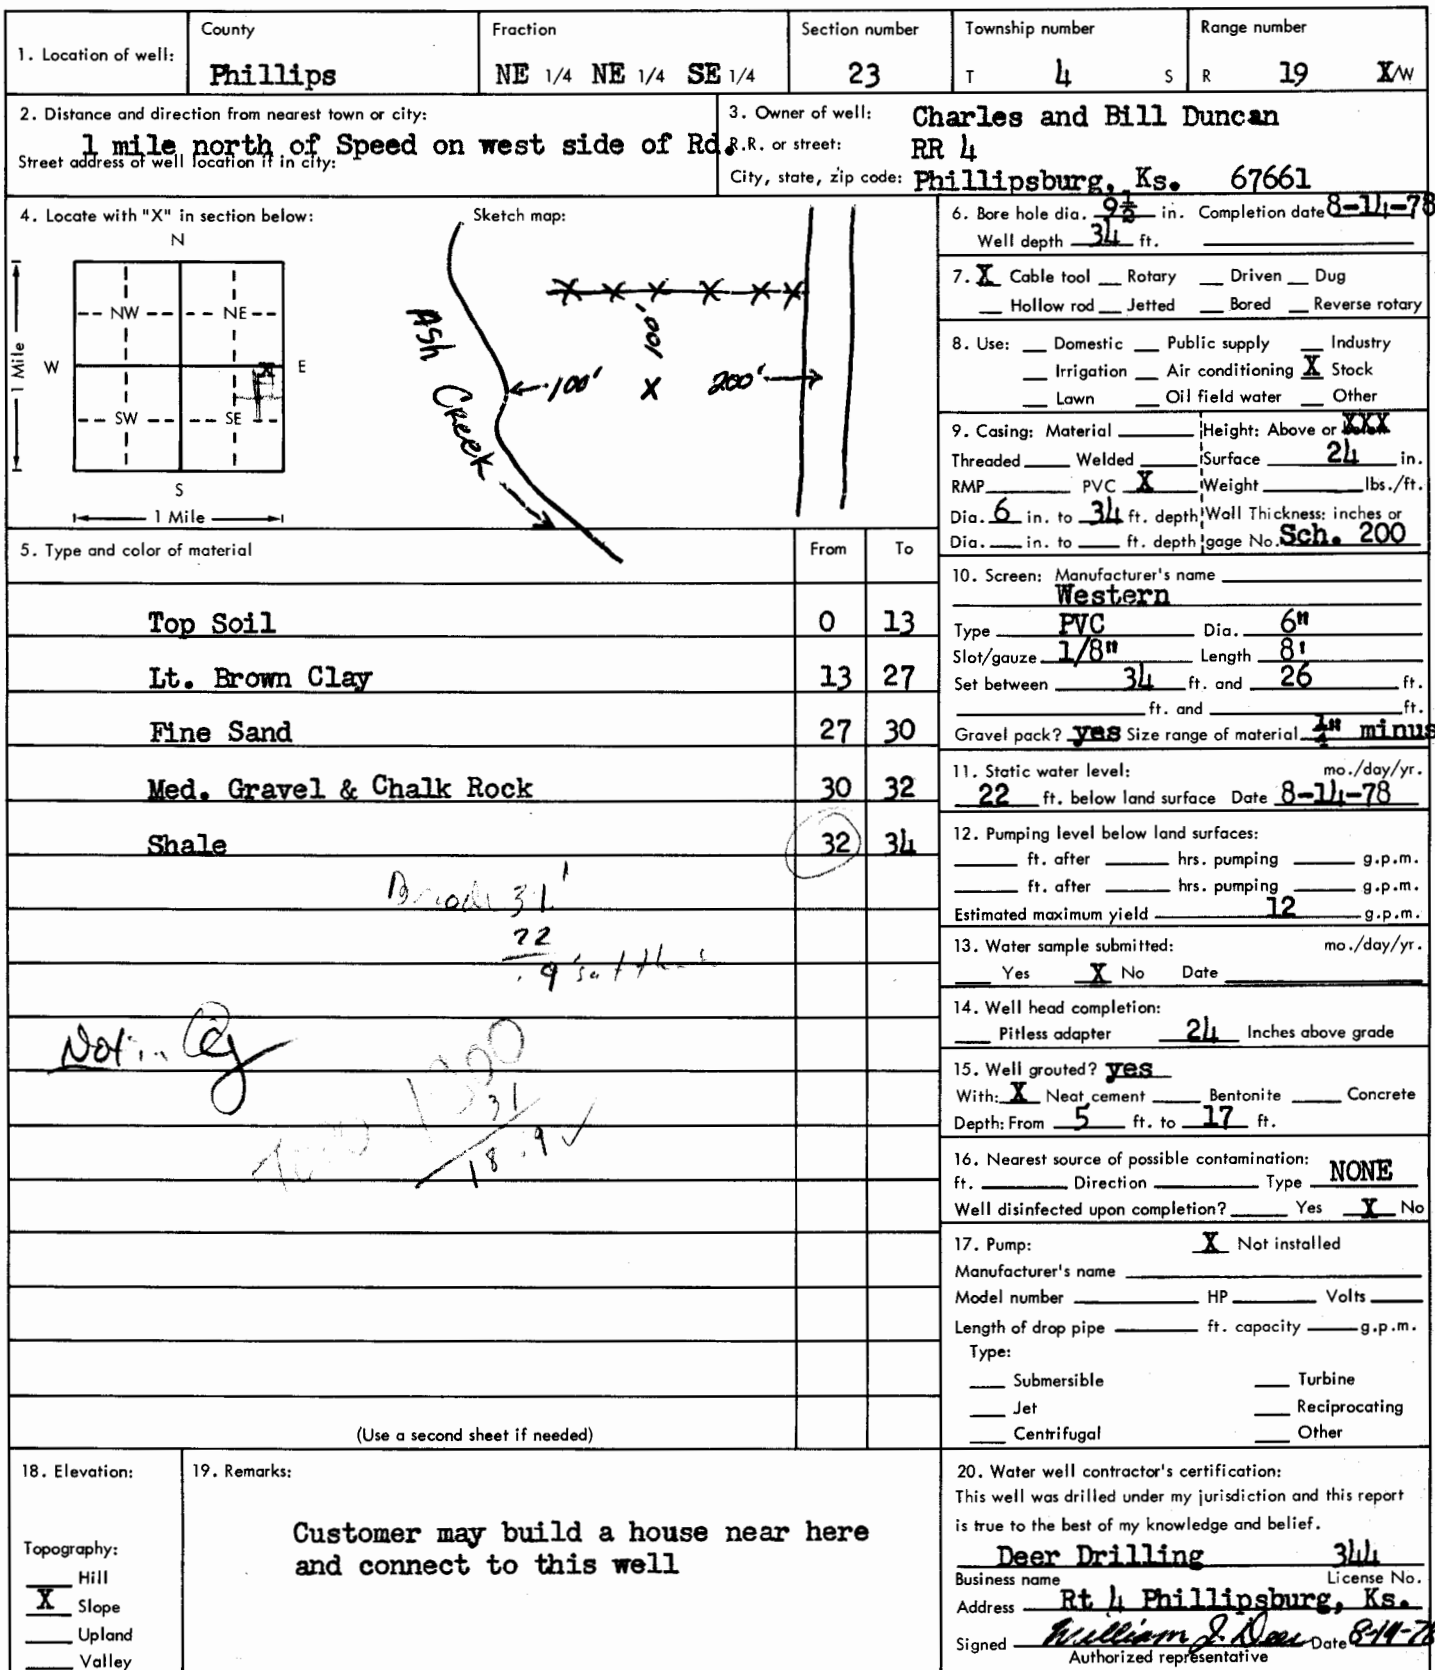 1. Location of well: County Phillips Fraction NE 1/4 NE 1/4 SE 1/4 Section number 23 Township number T 4 S Range number R 19 X/W
2. Distance and direction from nearest town or city:
1 mile north of Speed on west side of Rd.
Street address of well location if in city:
3. Owner of well: Charles and Bill Duncan
R.R. or street: RR 4
City, state, zip code: Phillipsburg, Ks. 67661
4. Locate with "X" in section below:
N
NW NE
W X E
SW SE
S
1 Mile
1 Mile
Sketch map:
Ash Creek
100'
100' X 200'
5. Type and color of material From To
Top Soil 0 13
Lt. Brown Clay 13 27
Fine Sand 27 30
Med. Gravel & Chalk Rock 30 32
Shale 32 34
31'
22
9'
Not in
31
(Use a second sheet if needed)
6. Bore hole dia. 9 1/2 in. Completion date 8-14-78
Well depth 34 ft.
7. X Cable tool Rotary Driven Dug
Hollow rod Jetted Bored Reverse rotary
8. Use: Domestic Public supply Industry
Irrigation Air conditioning X Stock
Lawn Oil field water Other
9. Casing: Material Height: Above or XXX
Threaded Welded Surface 24 in.
RMP PVC X Weight lbs./ft.
Dia. 6 in. to 34 ft. depth Wall Thickness: inches or
Dia. in. to ft. depth gage No. Sch. 200
10. Screen: Manufacturer's name
Western
Type PVC Dia. 6"
Slot/gauze 1/8" Length 8'
Set between 34 ft. and 26 ft.
ft. and ft.
Gravel pack? yes Size range of material 1/4" minus
11. Static water level: mo./day/yr.
22 ft. below land surface Date 8-14-78
12. Pumping level below land surfaces:
ft. after hrs. pumping g.p.m.
ft. after hrs. pumping g.p.m.
Estimated maximum yield 12 g.p.m.
13. Water sample submitted: mo./day/yr.
Yes X No Date
14. Well head completion:
Pitless adapter 24 Inches above grade
15. Well grouted? yes
With: X Neat cement Bentonite Concrete
Depth: From 5 ft. to 17 ft.
16. Nearest source of possible contamination:
ft. Direction Type NONE
Well disinfected upon completion? Yes X No
17. Pump: X Not installed
Manufacturer's name
Model number HP Volts
Length of drop pipe ft. capacity g.p.m.
Type:
Submersible Turbine
Jet Reciprocating
Centrifugal Other
18. Elevation:
Topography:
Hill
X Slope
Upland
Valley
19. Remarks:
Customer may build a house near here
and connect to this well
20. Water well contractor's certification:
This well was drilled under my jurisdiction and this report
is true to the best of my knowledge and belief.
Deer Drilling 344
Business name License No.
Address Rt 4 Phillipsburg, Ks.
Signed William J. Deer Date 8-19-78
Authorized representative